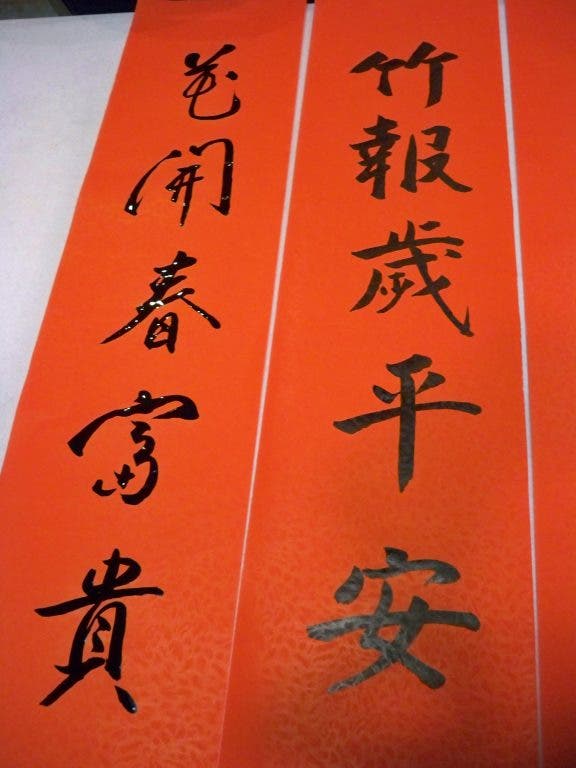 竹報歲平安
花開春富貴